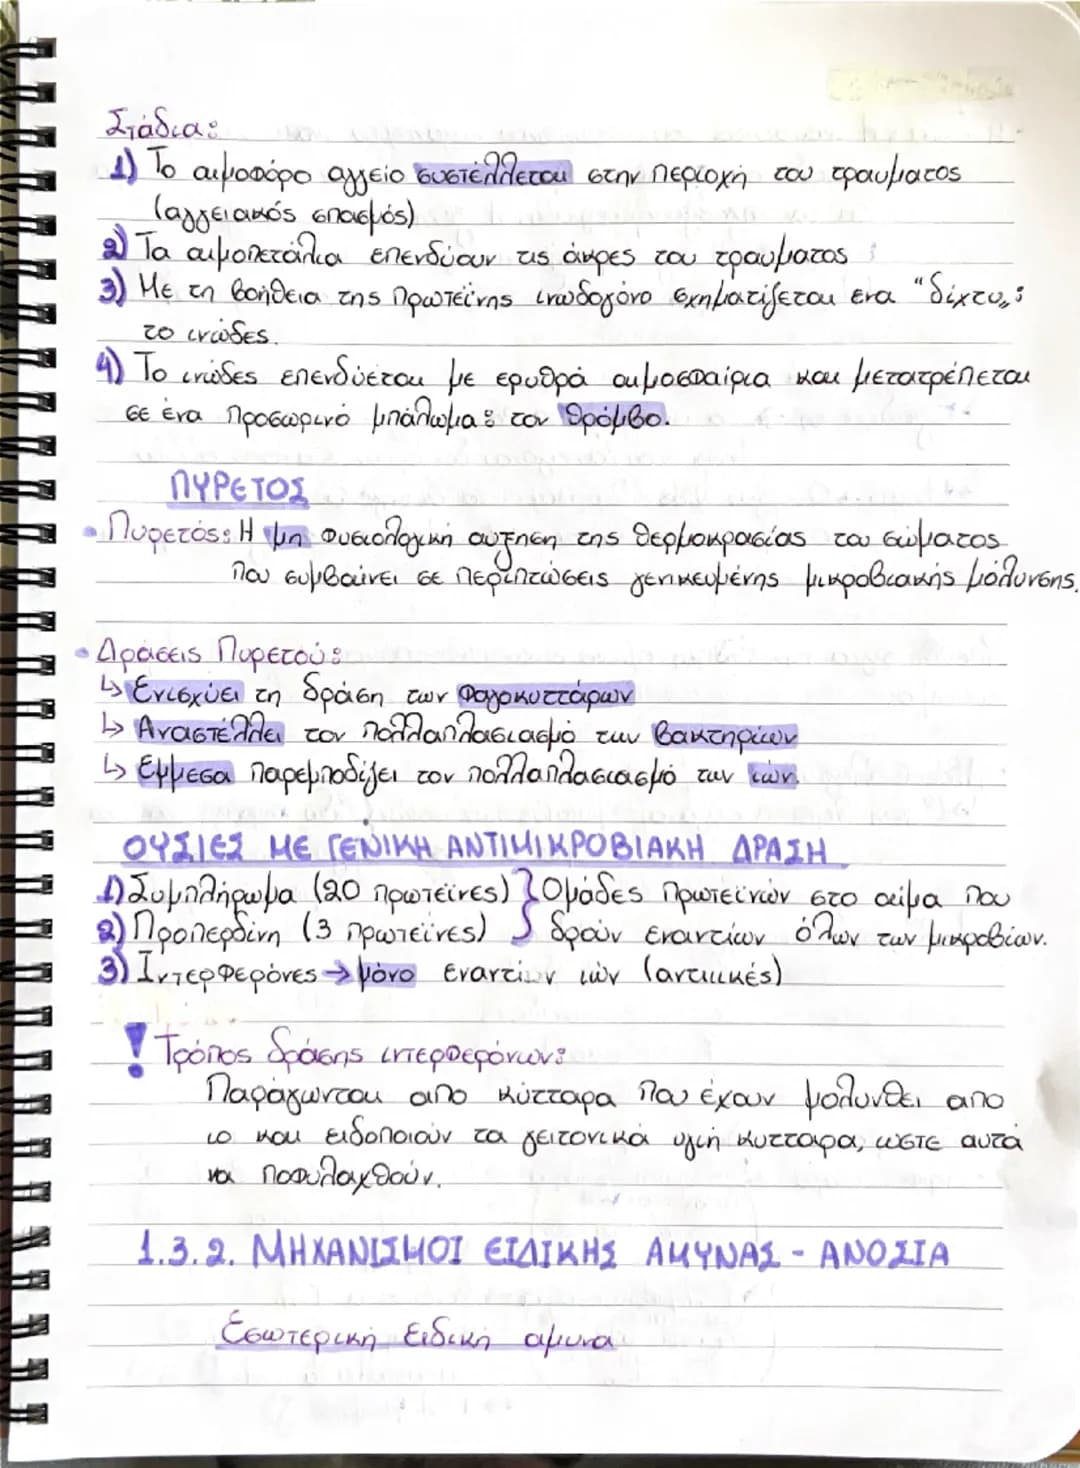 Στάδια:
1) Το αιμοφόρο αγγείο συστέλλεται στην περιοχή του τραύματος
(αγγειακός σπασμός)
2) Τα αιμοπετάλια επενδύουν τις άκρες του τραύματος
3) Με τη βοήθεια της πρωτεΐνης ινωδογόνο σχηματίζεται ενα "δίχτυ„:
το ινώδες.
4) Το ινώδες επενδύεται με ερυθρά αιμοσφαίρια και μετατρέπεται
σε ένα προσωρινό μπάλωμα: τον θρόμβο.
ΠΥΡΕΤΟΣ
• Πυρετός: Η μη φυσιολογική αύξηση της θερμοκρασίας του σώματος
που συμβαίνει σε περιπτώσεις γενικευμένης μικροβιακής μόλυνσης.
• Δράσεις Πυρετού:
↳ Ενισχύει τη δράση των φαγοκυττάρων
↳ Αναστέλλει τον πολλαπλασιασμό των βακτηρίων
↳ Έμμεσα παρεμποδίζει τον πολλαπλασιασμό των ιών.
ΟΥΣΙΕΣ ΜΕ ΓΕΝΙΚΗ ΑΝΤΙΜΙΚΡΟΒΙΑΚΗ ΔΡΑΣΗ
1) Συμπλήρωμα (20 πρωτεΐνες) } Ομάδες πρωτεϊνών στο αίμα που
2) Προπερδίνη (3 πρωτεΐνες) δρούν εναντίων όλων των μικροβίων.
3) Ιντερφερόνες → μόνο εναντίων ιών (αντιικές)
! Τρόπος δράσης ιντερφερόνων:
Παράγωνται απο κύτταρα που έχουν μολυνθει απο
ιο και ειδοποιούν τα γειτονικά υγιή κυτταρα, ωστε αυτά
να ποφυλαχθούν.
1.3.2. ΜΗΧΑΝΙΣΜΟΙ ΕΙΔΙΚΗΣ ΑΜΥΝΑΣ - ΑΝΟΣΙΑ
Εσωτερική ειδική αμυνα